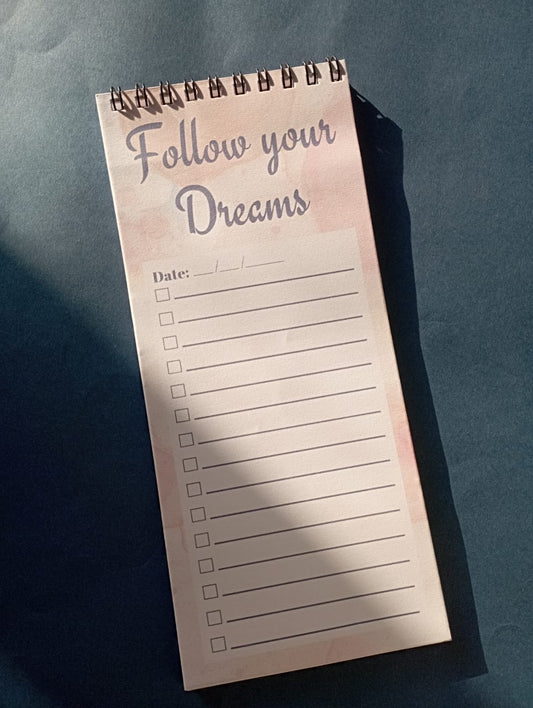 Follow your
Dreams
Date: __/__/____